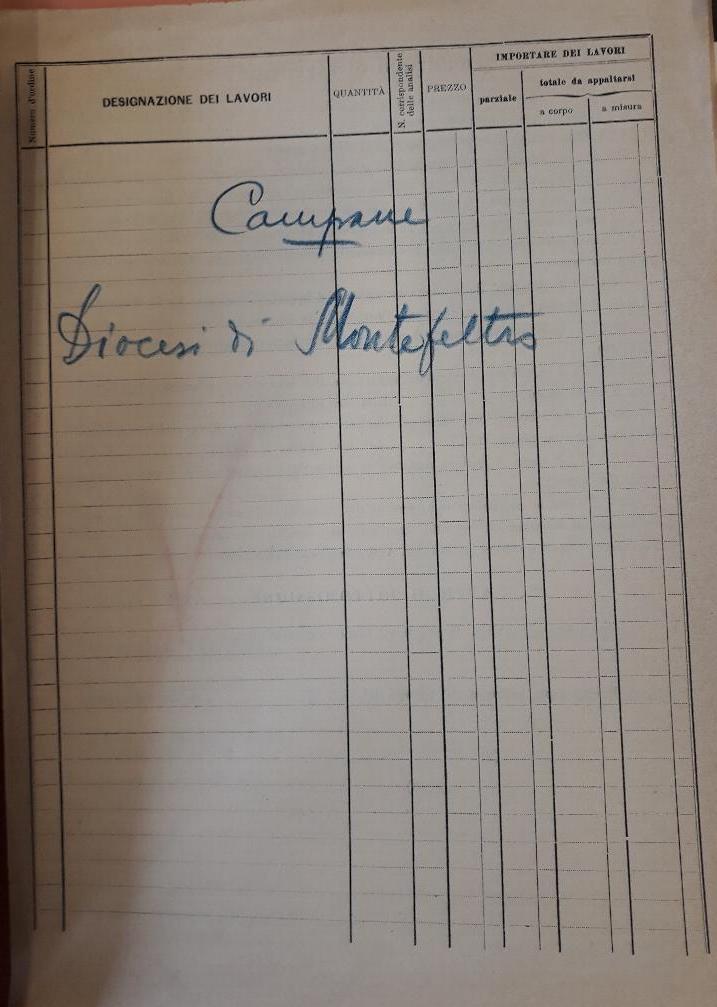 Numero d'ordine
DESIGNAZIONE DEI LAVORI
QUANTITÀ
N. corrispondente
delle analisi
PREZZO
IMPORTARE DEI LAVORI
parziale
totale da appaltarsi
a corpo
a misura
Campane
Diocesi di Montefeltro